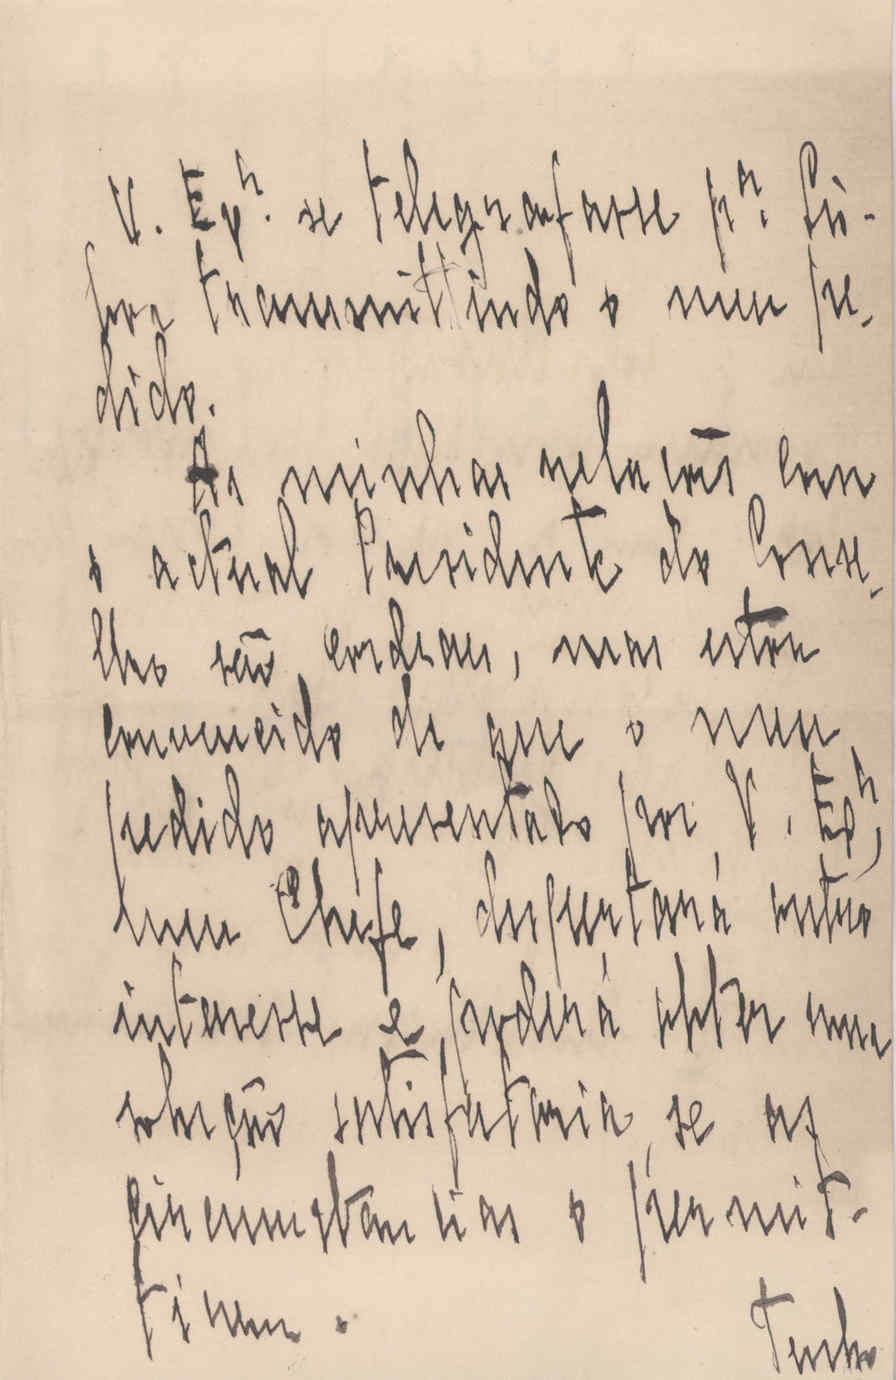 V. Exª. se telegrafasse pª. Lis-
boa transmittindo o meu pe-
dido.
As minhas relacões com
o actual Presidente do Conse-
lho são cordeaes, mas estou
convencido de que o meu
pedido apresentado por V. Exª,
meu Chefe, despertará outro
interesse e poderá obter uma
solução satisfatoria, se as
circumstancias o permit-
tirem.
Tenho